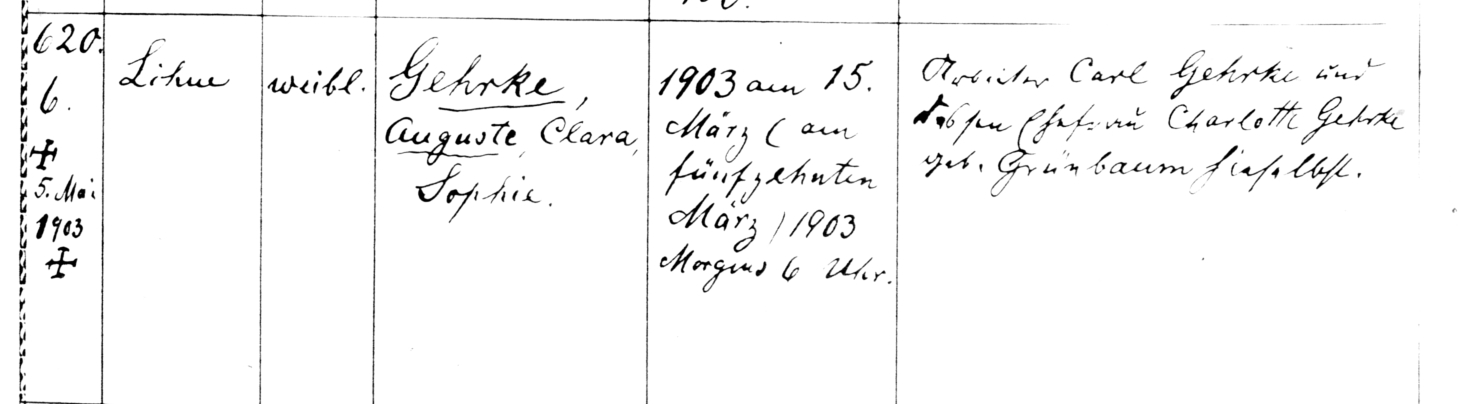 620.
6.
5. Mai
1903
Lihne
weibl.
Gehrke,
Auguste, Clara,
Sophie.
1903 am 15.
März ( am
fünfzehnten
März ) 1903
Morgens 6 Uhr.
Arbeiter Carl Gehrke und
dessen Ehefrau Charlotte Gehrke
geb. Grünbaum hieselbst.